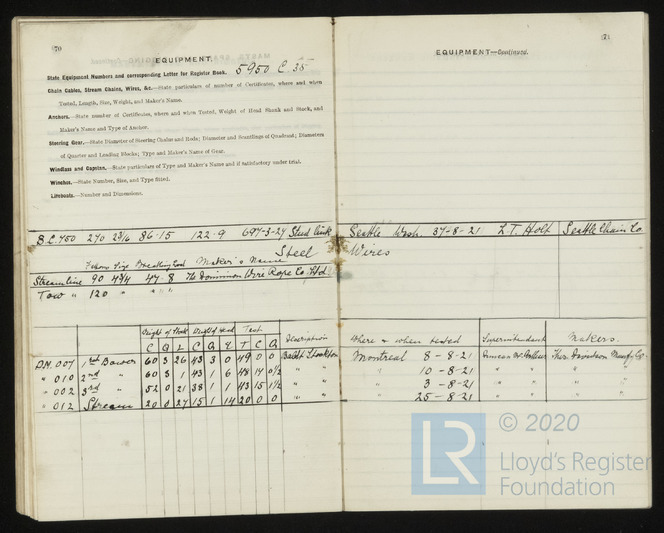 70
EQUIPMENT.
State Equipment Numbers and corresponding Letter for Register Book. 5950 C. 35
Chain Cables, Stream Chains, Wires, &c.—State particulars of number of Certificates, where and when
Tested, Length, Size, Weight, and Maker's Name.
Anchors.—State number of Certificates, where and when Tested, Weight of Head Shank and Stock, and
Maker's Name and Type of Anchor.
Steering Gear.—State Diameter of Steering Chains and Rods; Diameter and Scantlings of Quadrant; Diameters
of Quarter and Leading Blocks; Type and Maker's Name of Gear.
Windlass and Capstan.—State particulars of Type and Maker's Name and if satisfactory under trial.
Winches.—State Number, Size, and Type fitted.
Lifeboats.—Number and Dimensions.
B.C. 450 270 2 3/16 86·15 122·9 697-3-27 Stud link
Steel
Fathoms Size Breaking load Maker's Name
Streamline 90 4 3/4 47·8 The Dominion Wire Rope Co. Ltd
Tow " 120 " " "
Weight of Stock Weight of Head Test
C Q L C Q E T C Q Description
D.M. 007 1st Bower 60 3 26 43 3 0 49 0 0
" 010 2nd " 60 3 1 43 1 6 48 14 0 1/2 " "
" 002 3rd " 52 0 21 38 1 1 43 15 1 1/2 " "
" 012 Stream 20 0 27 15 1 14 20 0 0
71
EQUIPMENT—Continued.
Seattle Wash. 37-8-21 L.T. Holt Seattle Chain Co
Wires
Where & when tested Superintendent Makers.
Montreal 8-8-21 Duncan Thos. Davidson Manfg Co.
" 10-8-21 " " " "
" 3-8-21 " " "
" 25-8-21 " " " "
LR
© 2020
Lloyd's Register
Foundation